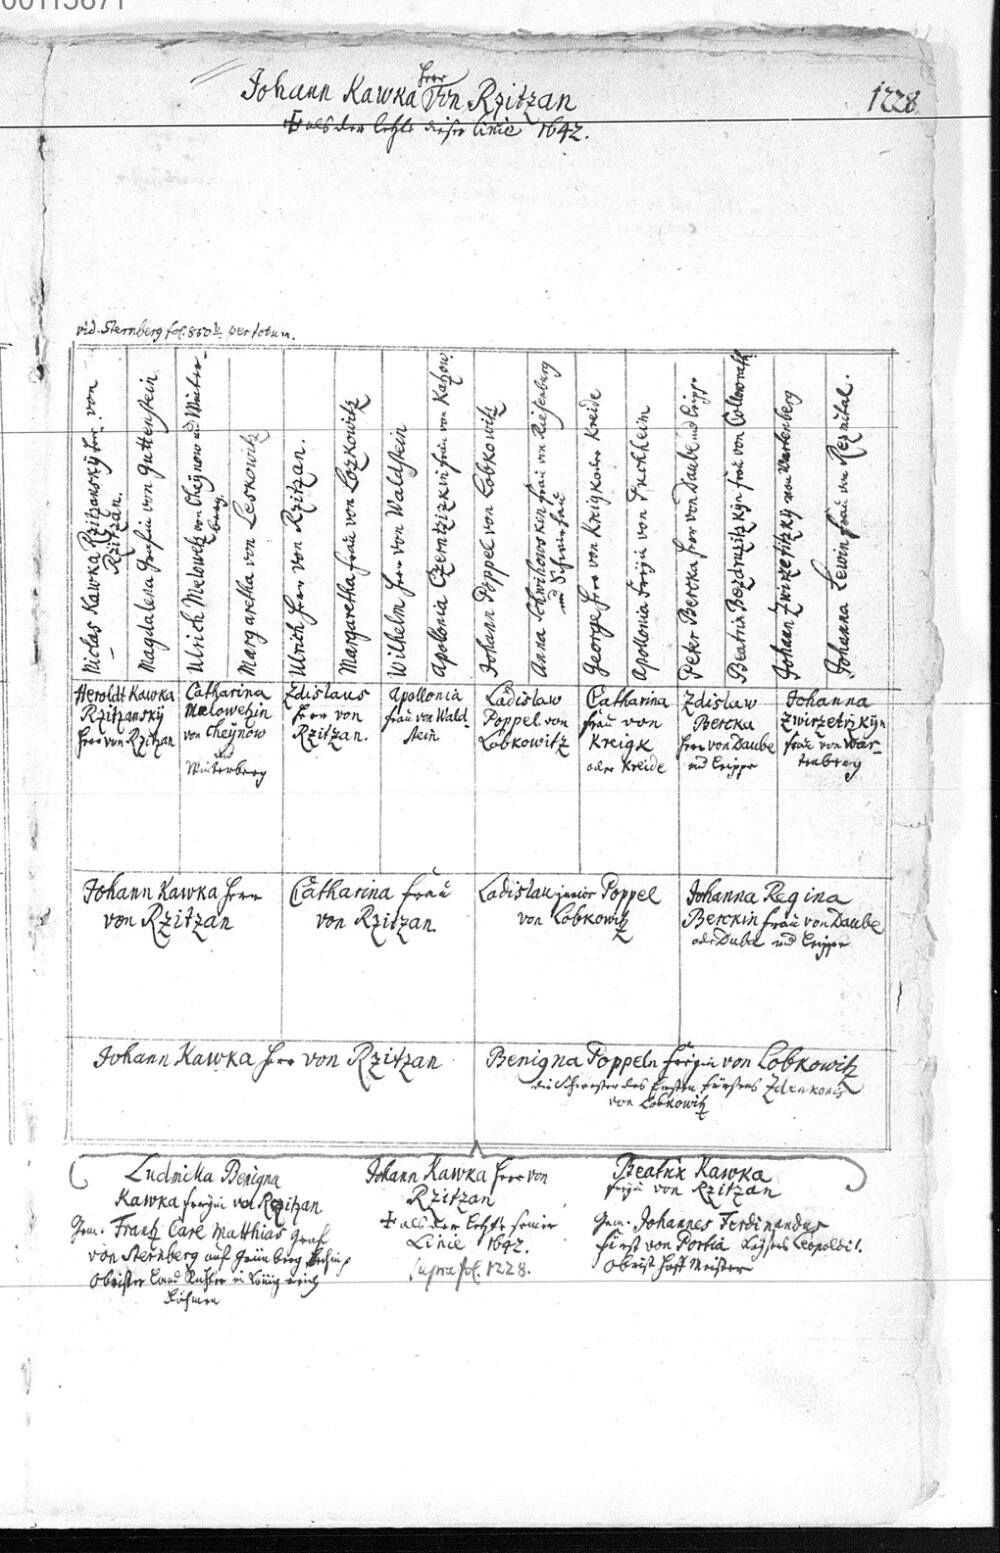 00115671
Johann Kawka Herr von Rzitzan
1228
als der letzte dieser Linie 1642.
vid. Sternberg fol. 850 b. per totum.
Niclas Kawka Rzitzanskÿ Herr von
Rzitzan.
Magdalena Gräfin von Guttenstein
Ulrich Malowetz von Cheÿnow und Winter-
berg.
Margaretha von Leskowitz
Ulrich Herr von Rzitzan.
Margaretha Frau von Lozkowitz
Wilhelm Herr von Waldstein
Apollonia Czerntzizkin Frau von Kazow
Johann Poppel von Lobkowitz
Anna Schwihowskin Frau von Riesenberg
und
George Herr von Kreigk oder Kreide
Apollonia Freÿin von
Peter Bercka Herr von Daube und Leippe
Beatrix Bezdruzitzkÿn Frau von Collowrath
Johann Zwirzetitzkÿ von Wartenberg
Johanna Lewin Frau von
Heroldt Kawka
Rzitzanskÿ
Herr von Rzitzan
Catharina
Malowetzin
von Cheÿnow
und
Winterberg
Zdislaus
Herr von
Rzitzan.
Apollonia
Frau von Wald-
stein
Ladislaw
Poppel von
Lobkowitz
Catharina
Frau von
Kreigk
oder Kreide
Zdislaw
Bercka
Herr von Daube
und Leippe
Johanna
Zwirzetizkÿn
Frau von War-
tenberg
Johann Kawka Herr
von Rzitzan
Catharina Frau
von Rzitzan.
Ladislau junior Poppel
von Lobkowitz
Johanna Regina
Berckin Frau von Daube
oder Dube und Leippe
Johann Kawka Herr von Rzitzan
Benigna Poppeln Freÿin von Lobkowitz
die Schwester des Ersten Fürstens Zdenkonis
von Lobkowitz
Ludmilla Benigna
Kawka Freÿin von Rzitzan
Gem. Frantz Carl Matthias Graf
von Sternberg auf Grünberg
Obrister Land Richter in Königreich
Böhmen
Johann Kawka Herr von
Rzitzan
als der letzte seiner
Linie 1642.
supra fol. 1228.
Beatrix Kawka
Freÿin von Rzitzan
Gem. Johannes Ferdinandus
Fürst von Portia Kaÿsers Leopoldi I.
Obrist Hoff Meister